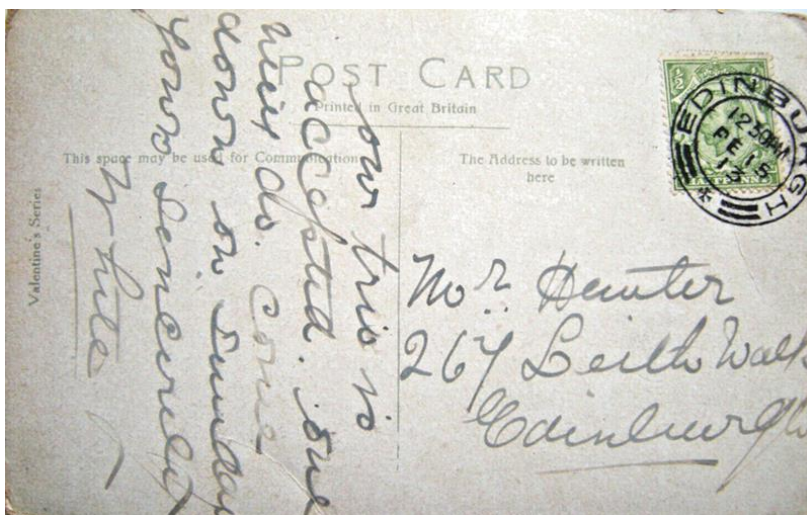 POST CARD
Printed in Great Britain
This space may be used for Communication
The Address to be written
here
Valentine's Series
½
EDINBURGH
1230AM
FE 15
13
Mr. Hunter
267 Leith Walk
Edinburgh
Our trio is
accepted. one
next do. Come
down on Sunday
Yours Sincerely
White